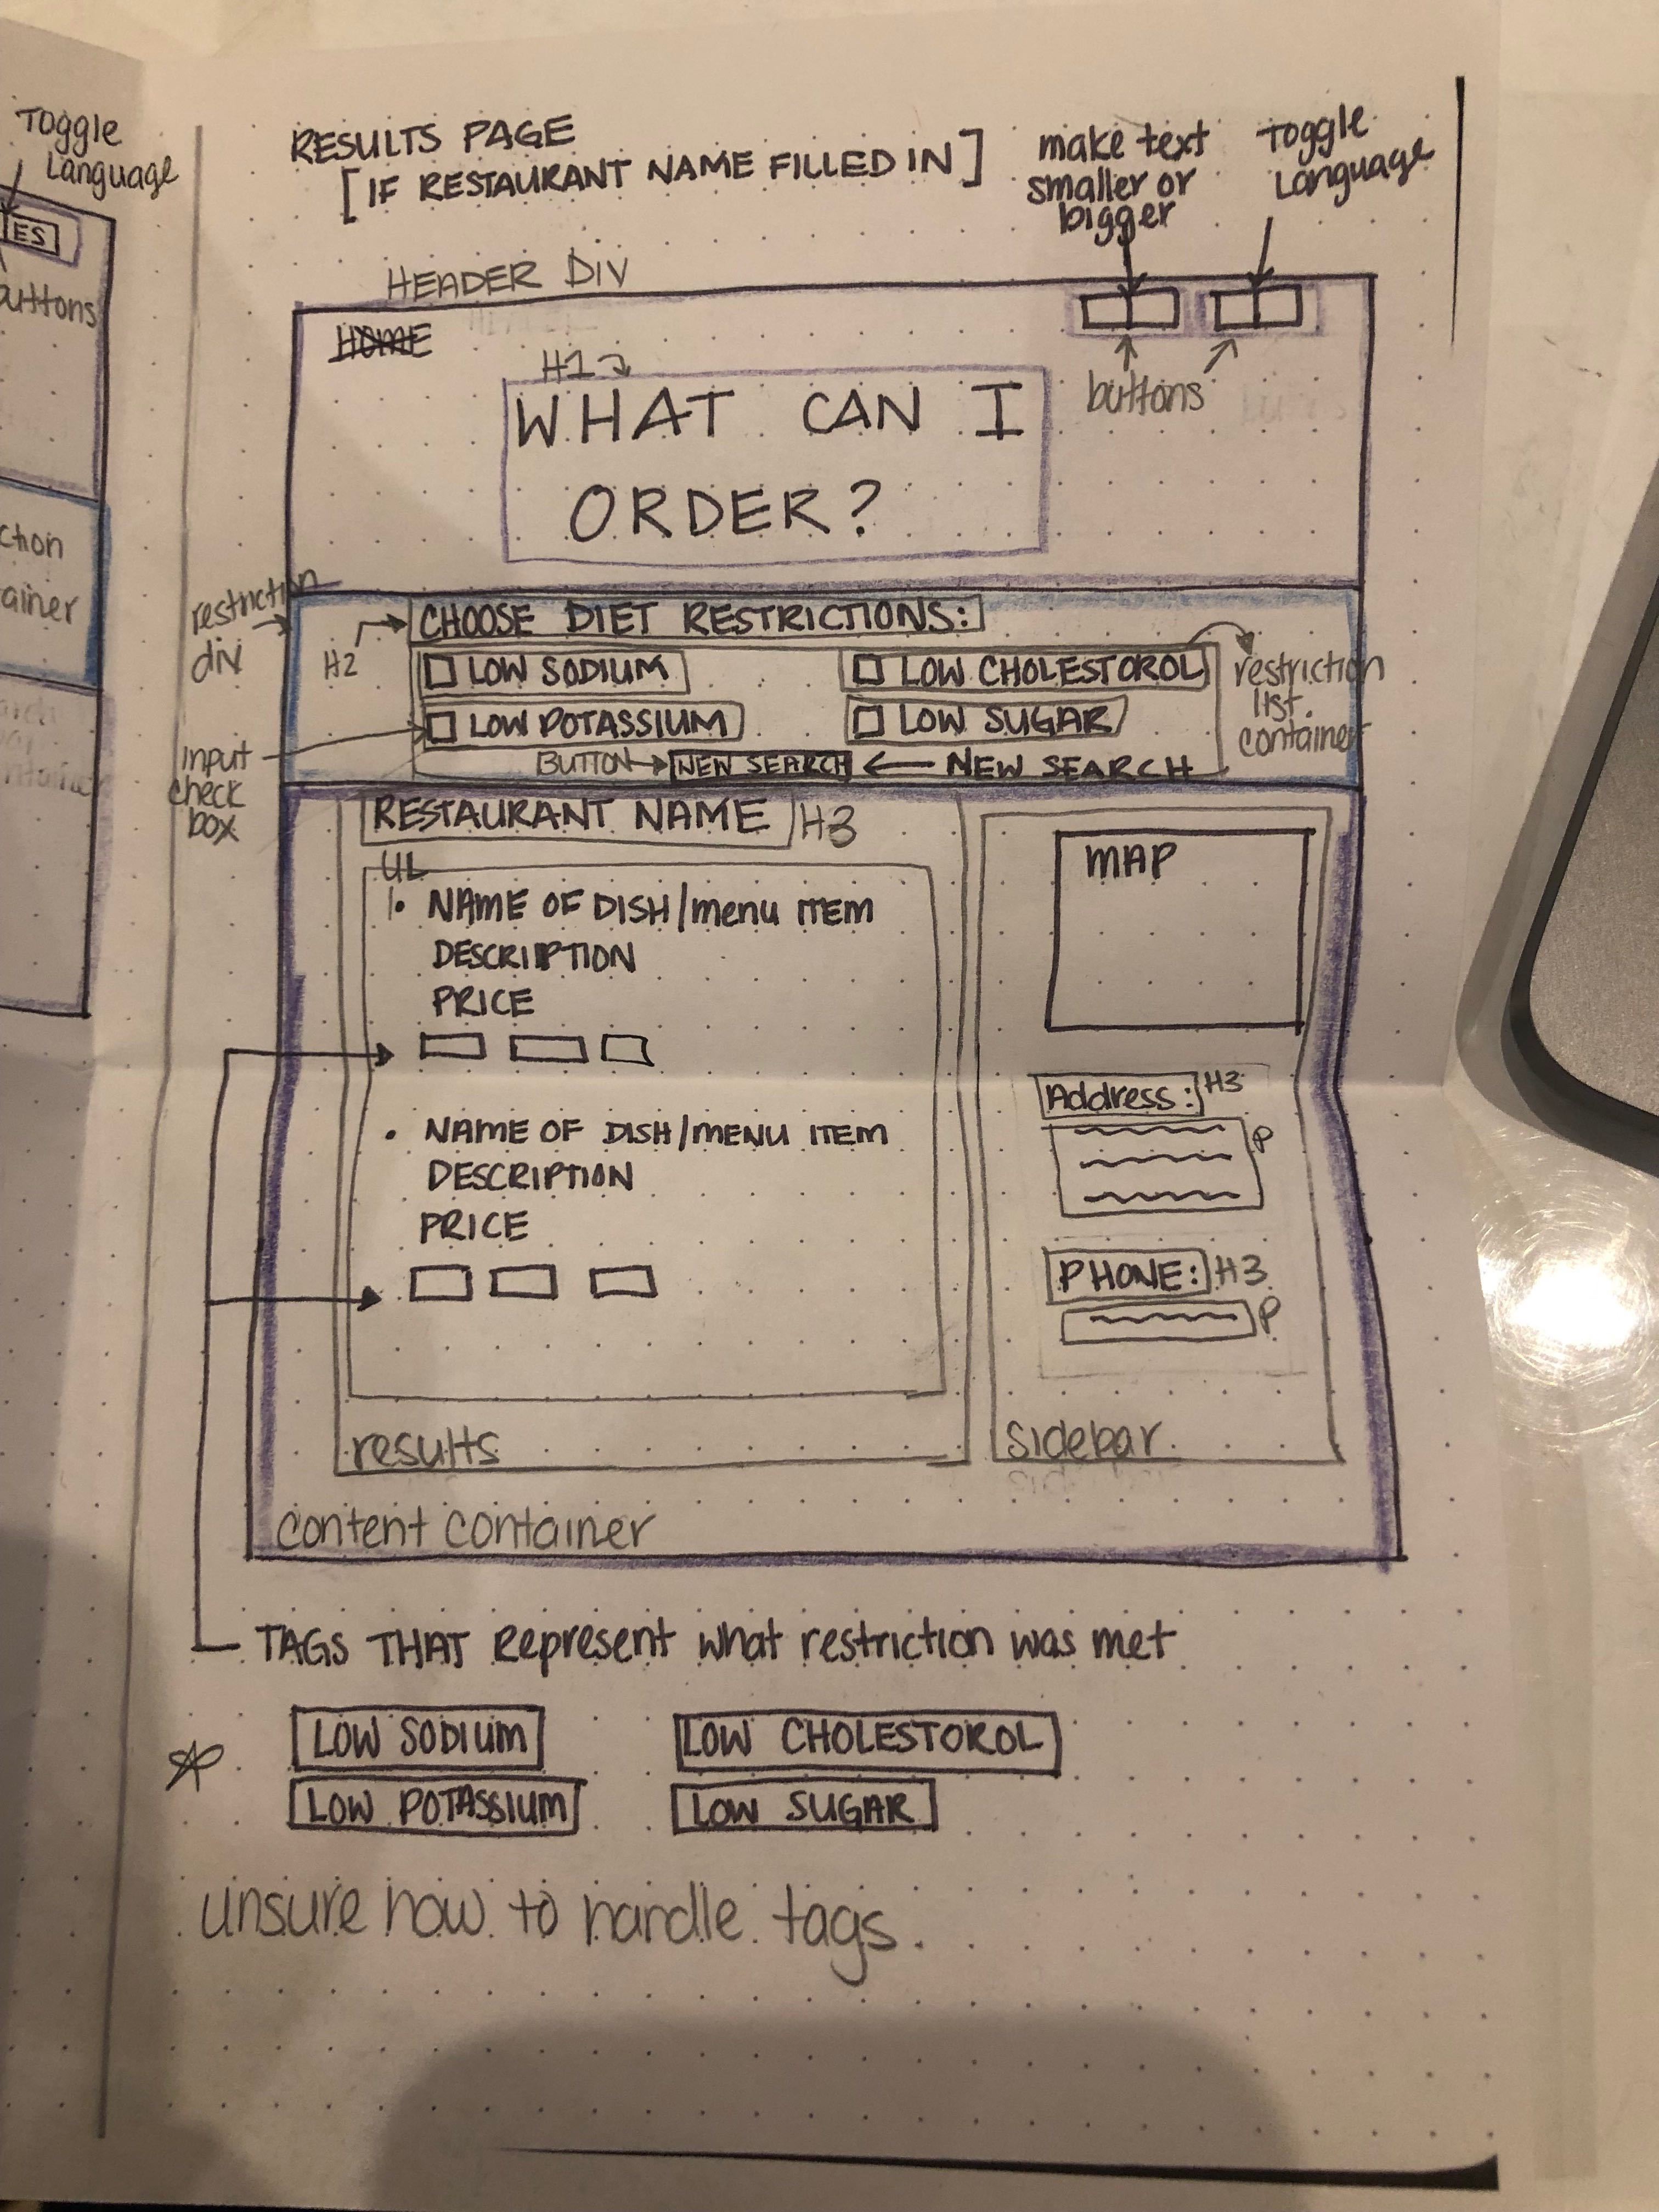 Toggle
Language
ES
buttons
RESULTS PAGE
[IF RESTAURANT NAME FILLED IN]
make text
smaller or
bigger
Toggle
Language
HEADER DIV
HOME
H1
buttons
WHAT CAN I
ORDER?
restriction
div
H2
CHOOSE DIET RESTRICTIONS:
LOW SODIUM
LOW CHOLESTOROL
LOW POTASSIUM
LOW SUGAR
restriction
list
container
input
check
box
BUTTON
NEW SEARCH
NEW SEARCH
RESTAURANT NAME
H3
UL
• NAME OF DISH/menu ITEM
DESCRIPTION
PRICE
• NAME OF DISH/MENU ITEM
DESCRIPTION
PRICE
results
MAP
Address: H3
P
PHONE: H3
P
sidebar
content container
TAGS THAT Represent what restriction was met
LOW SODIUM
LOW CHOLESTOROL
LOW POTASSIUM
LOW SUGAR
unsure how to handle tags.